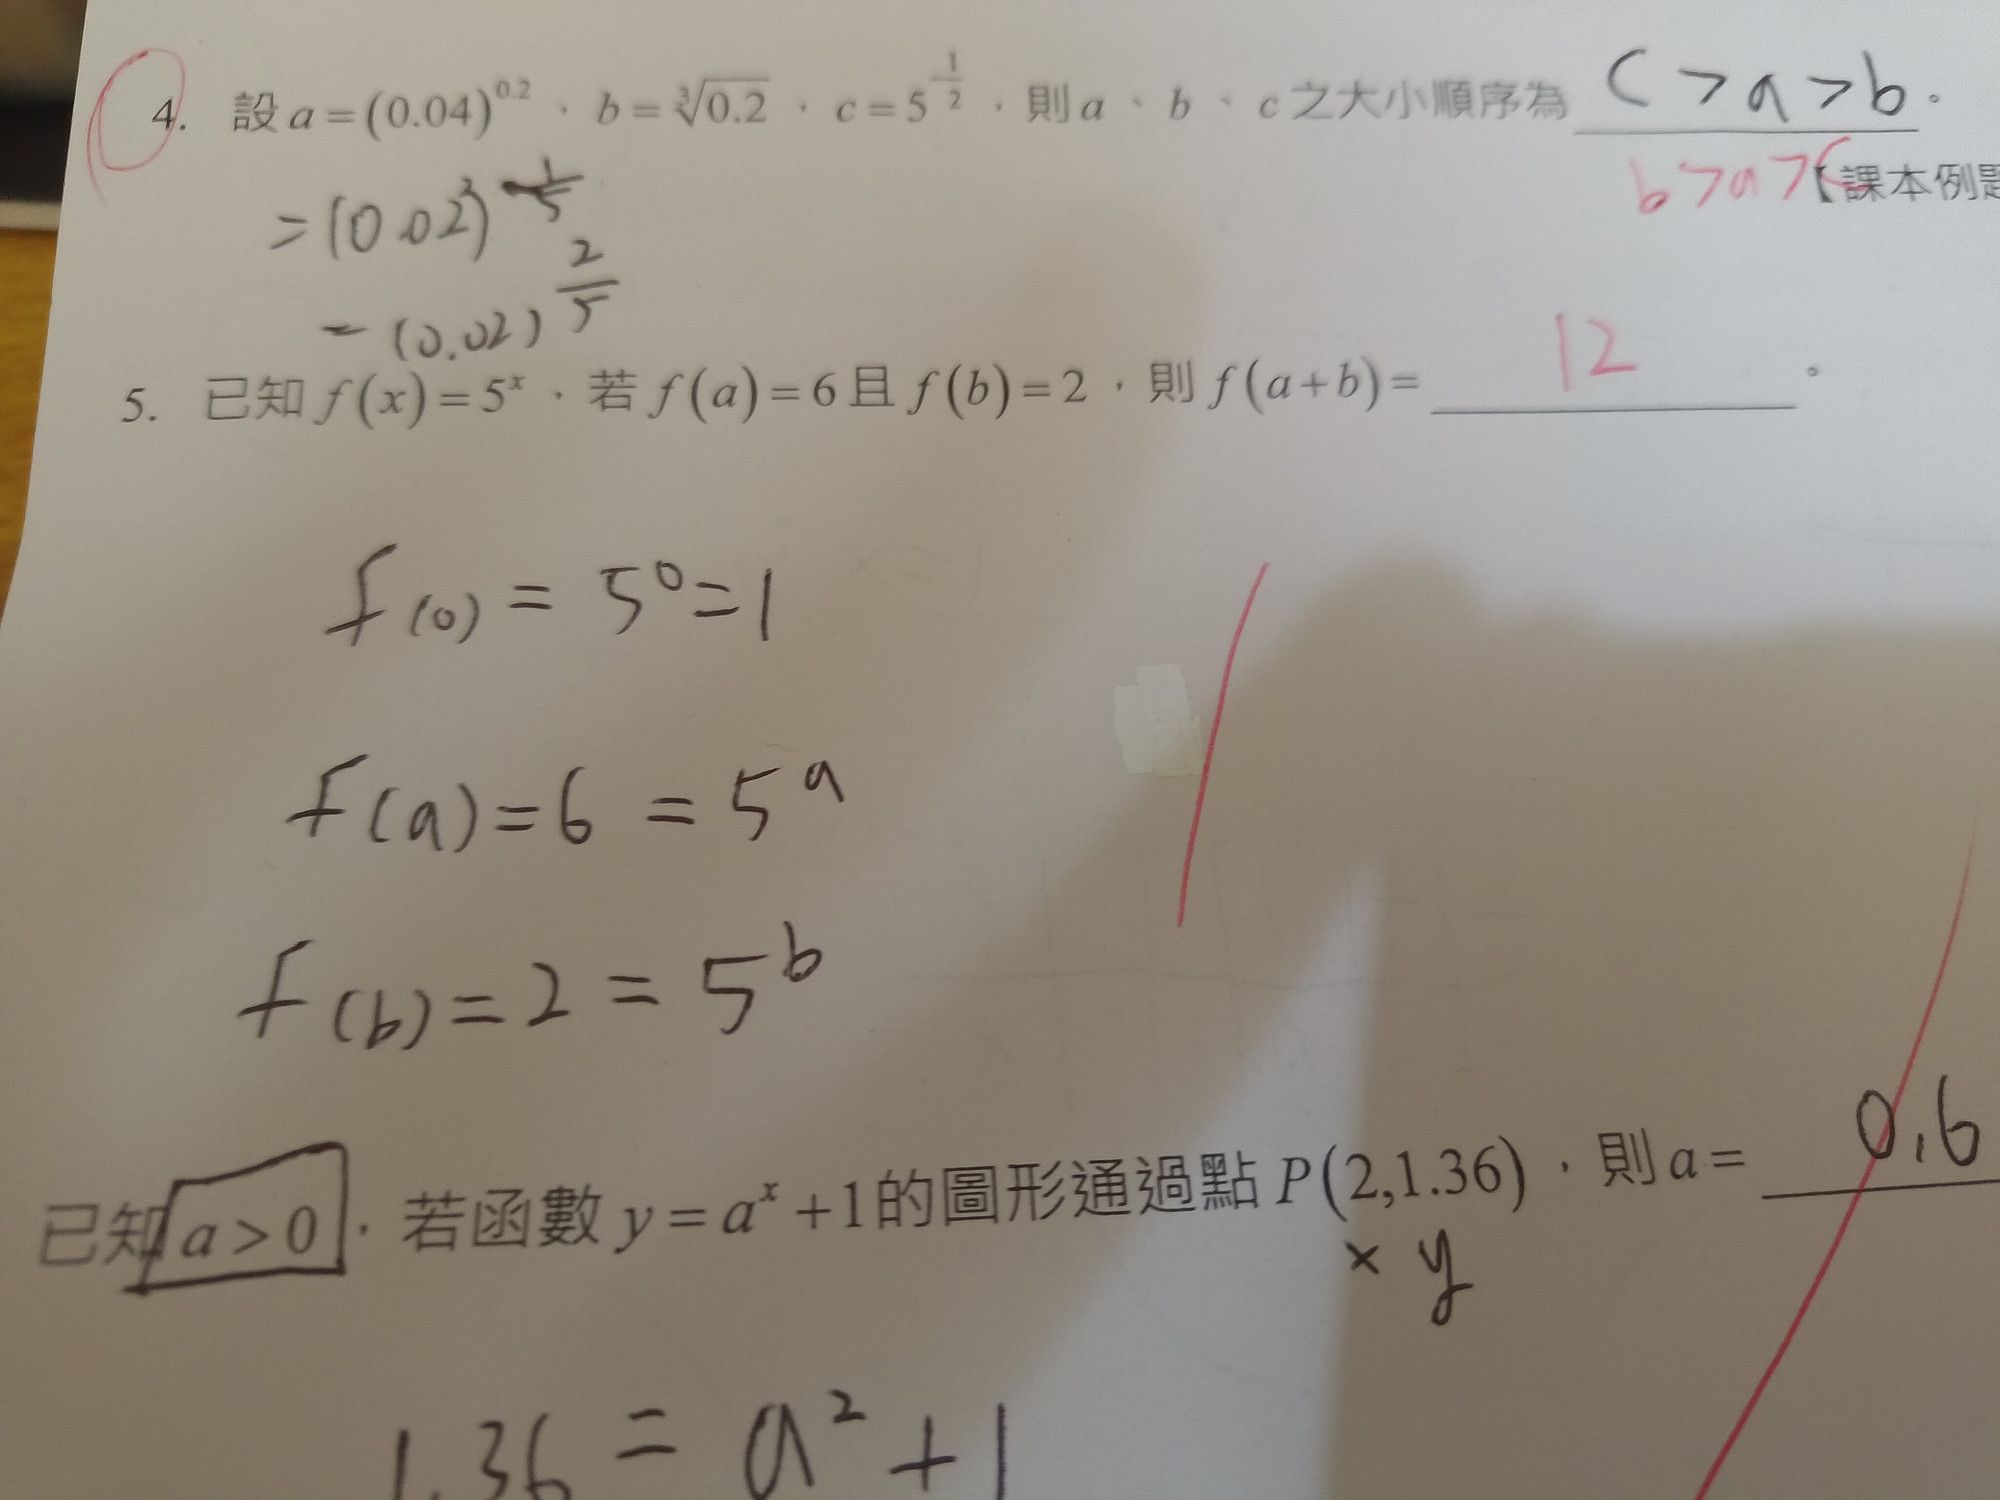 4. 設 a = (0.04)^0.2，b = ∛0.2，c = 5^(-1/2)，則 a、b、c 之大小順序為 c > a > b。
b > a > c 【課本例題
= (0.02²)^(1/5)
= (0.02)^(2/5)
5. 已知 f(x) = 5^x，若 f(a) = 6 且 f(b) = 2，則 f(a+b) = 12。
f(0) = 5^0 = 1
f(a) = 6 = 5^a
f(b) = 2 = 5^b
已知 a > 0，若函數 y = a^x + 1 的圖形通過點 P(2,1.36)，則 a = 0.6
x y
1.36 = a² + 1